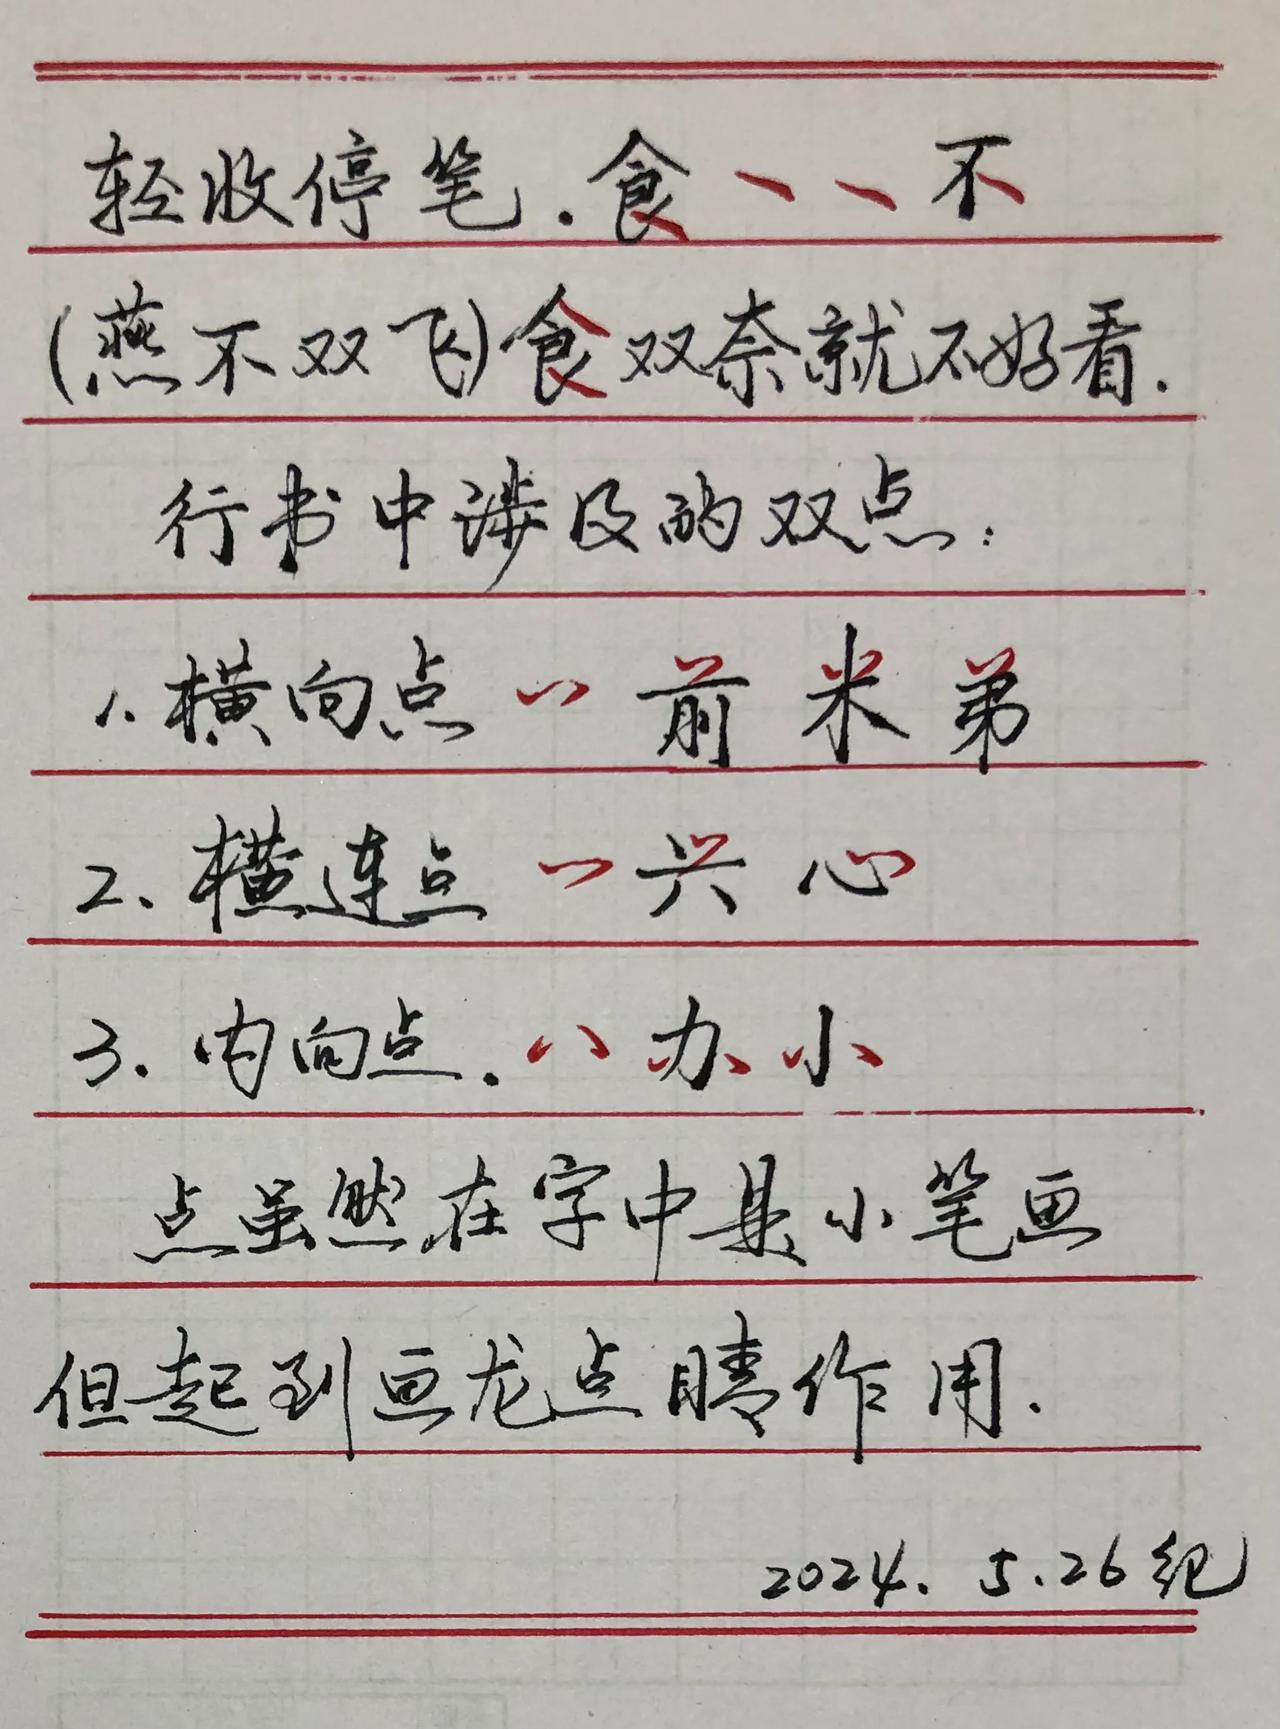 轻收停笔.食丶丶不
(燕不双飞)食双奈就不好看.
行书中涉及的双点:
1.横向点 丷 前 米 弟
2.横连点 兴 心
3.内向点. 办 小
点虽然在字中是小笔画
但起到画龙点睛作用.
2024.5.26纪